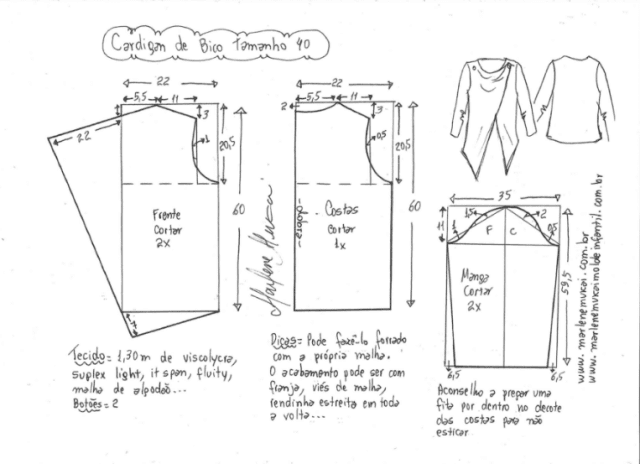 Cardigan de Bico Tamanho 40
22
5,5 11
3
1
22
20,5
60
Frente
cortar
2x
7
Tecido = 1,30m de viscolycra,
suplex light, it span, fluity,
malha de algodão...
Botões = 2
22
5,5 11
2
3
0,5
20,5
60
dobra
Costas
cortar
1x
Marlene Mukai
Dicas = Pode fazê-lo forrado
com a própria malha.
O acabamento pode ser com
franja, viés de malha,
rendinha estreita em toda
a volta...
35
11
1
1,5
2
0,5
F C
59,5
Manga
Cortar
2x
6,5
6,5
Aconselho a prepar uma
fita por dentro no decote
das costas para não
esticar
www.marlenemukai.com.br
www.marlenemukaimoldeinfantil.com.br